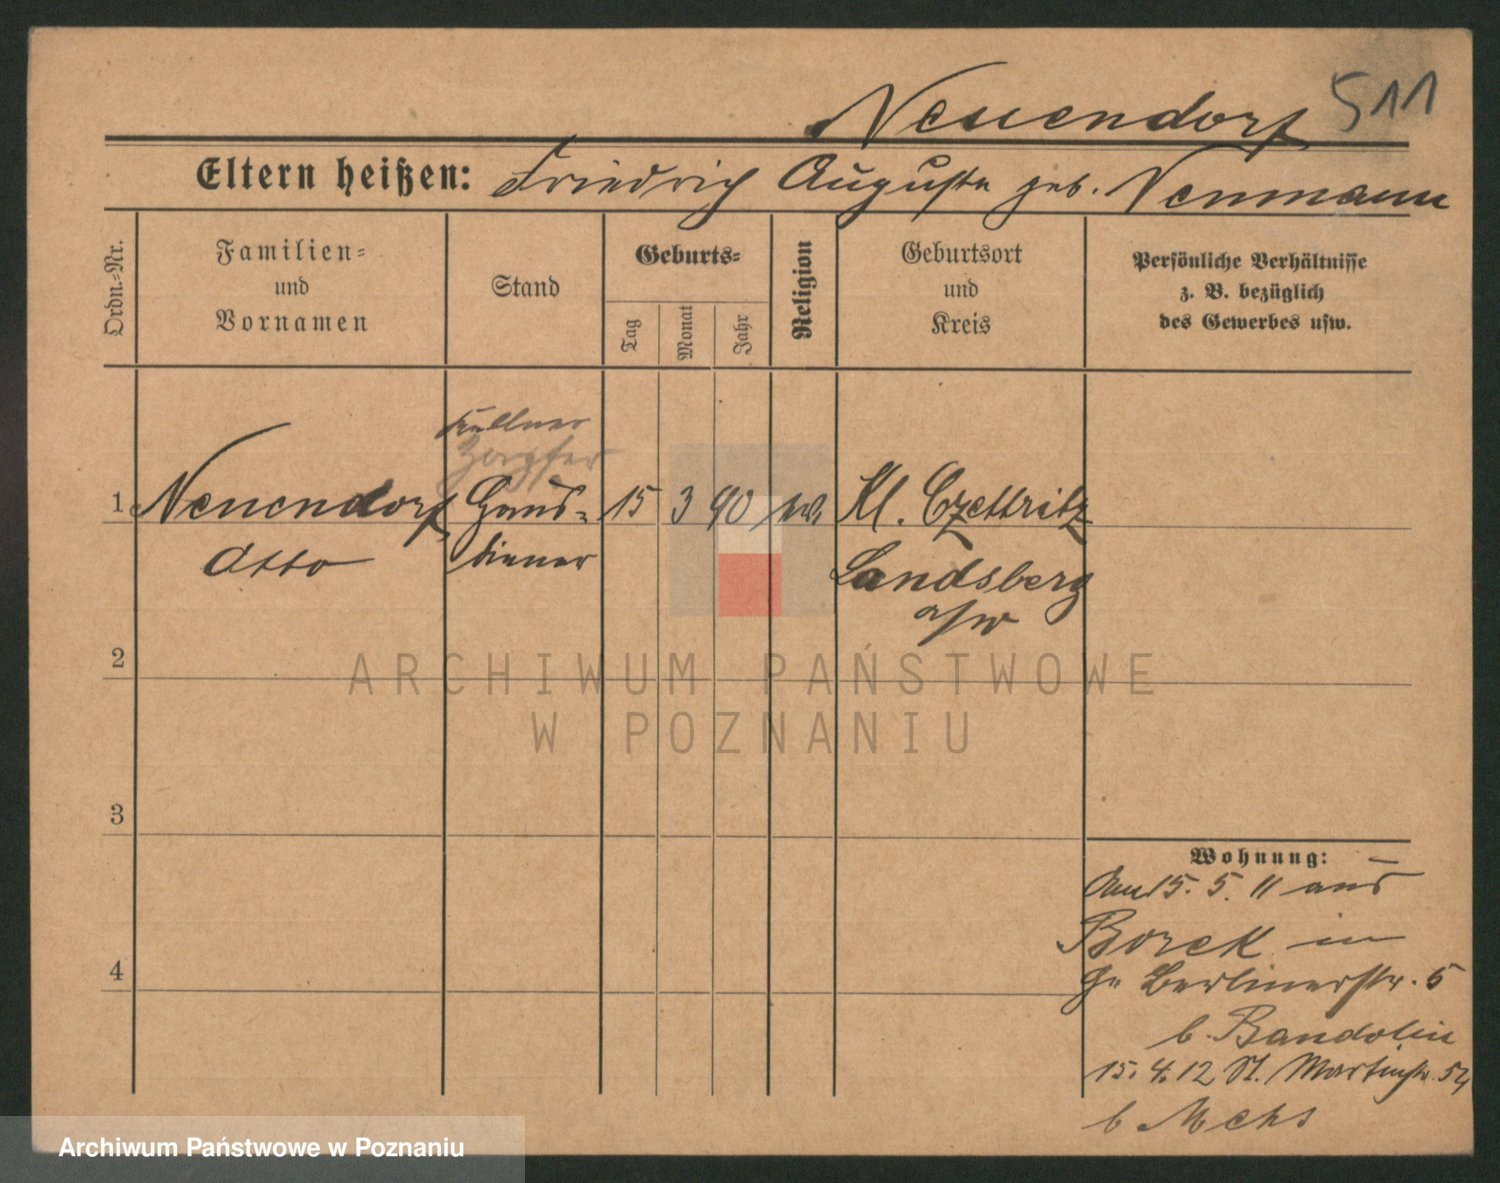 Neuendorf 511
Eltern heißen: Friedrich Auguste geb. Neumann
Ordn.-Nr.
Familien-
und
Vornamen
Stand
Geburts-
Tag
Monat
Jahr
Religion
Geburtsort
und
Kreis
Persönliche Verhältnisse
z. B. bezüglich
des Gewerbes usw.
Kellner
1 Neuendorf Haus- 15 3 90 Kl. Czettritz
Otto diener Landsberg
a/W
2
3
4
ARCHIWUM PAŃSTWOWE
W POZNANIU
Wohnung:
Am 15. 5. 11 aus
Borek in
Gr Berlinerstr. 5
b. Bandolin
15. 4. 12 St. Martinstr. 54
b Mehs
Archiwum Państwowe w Poznaniu